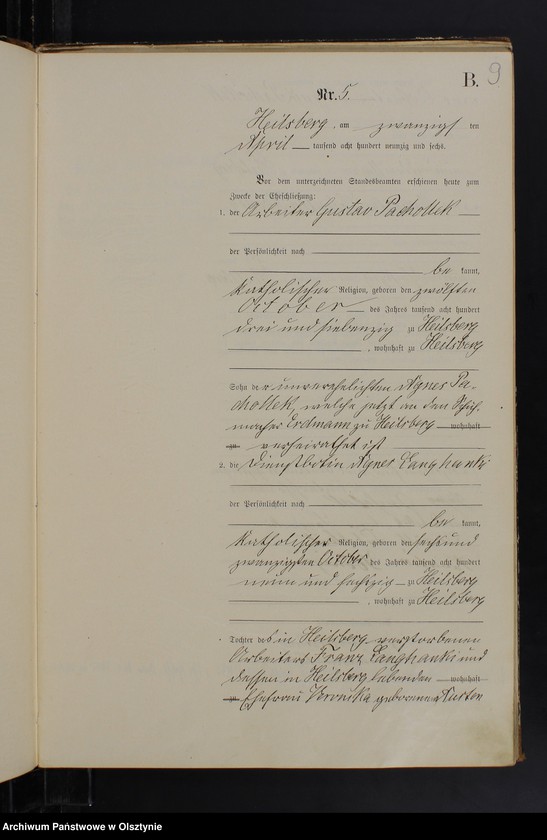 B. 9
Nr. 5.
Heilsberg, am zwanzigsten
April tausend acht hundert neunzig und sechs.
Vor dem unterzeichneten Standesbeamten erschienen heute zum
Zwecke der Eheschließung:
1. der Arbeiter Gustav Pachollek
der Persönlichkeit nach
be kannt,
katholischer Religion, geboren den zwölften
October des Jahres tausend acht hundert
drei und siebenzig zu Heilsberg
, wohnhaft zu Heilsberg
Sohn der unverehelichten Agnes Pa-
chollek, welche jetzt an den Schuh-
macher Erdmann zu Heilsberg wohnhaft
zu verheirathet ist
2. die Dienstbotin Agnes Langhanki
der Persönlichkeit nach
be kannt,
katholischer Religion, geboren den sechsund
zwanzigsten October des Jahres tausend acht hundert
neun und sechszig zu Heilsberg
, wohnhaft zu Heilsberg
Tochter des in Heilsberg verstorbenen
Arbeiters Franz Langhanki und
dessen in Heilsberg lebenden wohnhaft
zu Ehefrau Veronika geborene
Archiwum Państwowe w Olsztynie